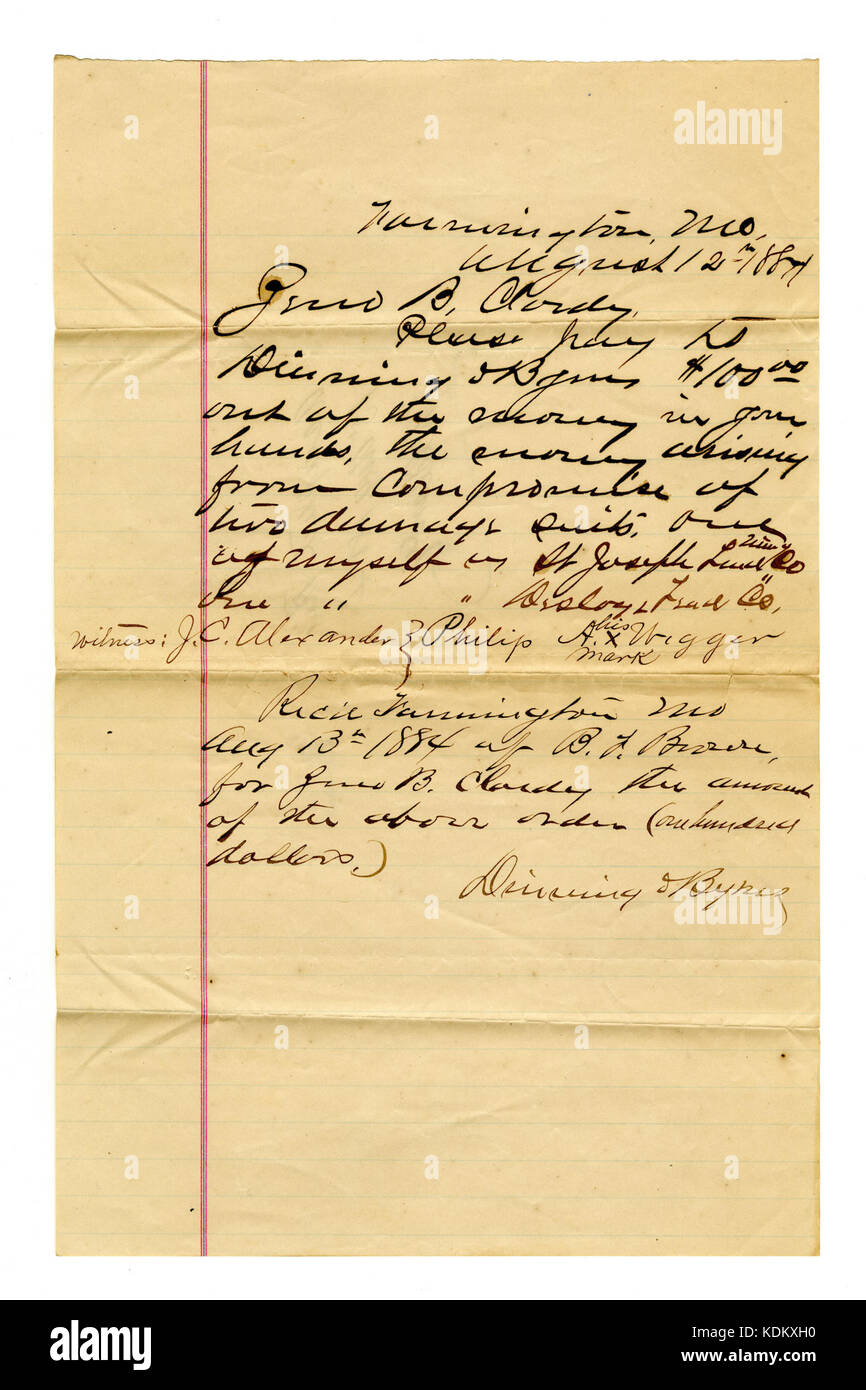 Farmington, Mo,
August 12th 1884
Jno B. Clardy,
Please pay to
Dinning & Byrns $100.00
out of the money in your
hands, the money arising
from compromise of
two damage suits, one
of myself vs St Joseph Lead Mining Co
one " " Desloge Lead Co,
witness: J. C. Alexander } Philip A. his x mark Wigger
Recd Farmington Mo
Aug 13th 1884 of B. F.
for Jno B. Clardy the amount
of the above order (one hundred
dollars.)
Dinning & Byrns
alamy
alamy
Image ID: KDKXH0
www.alamy.com